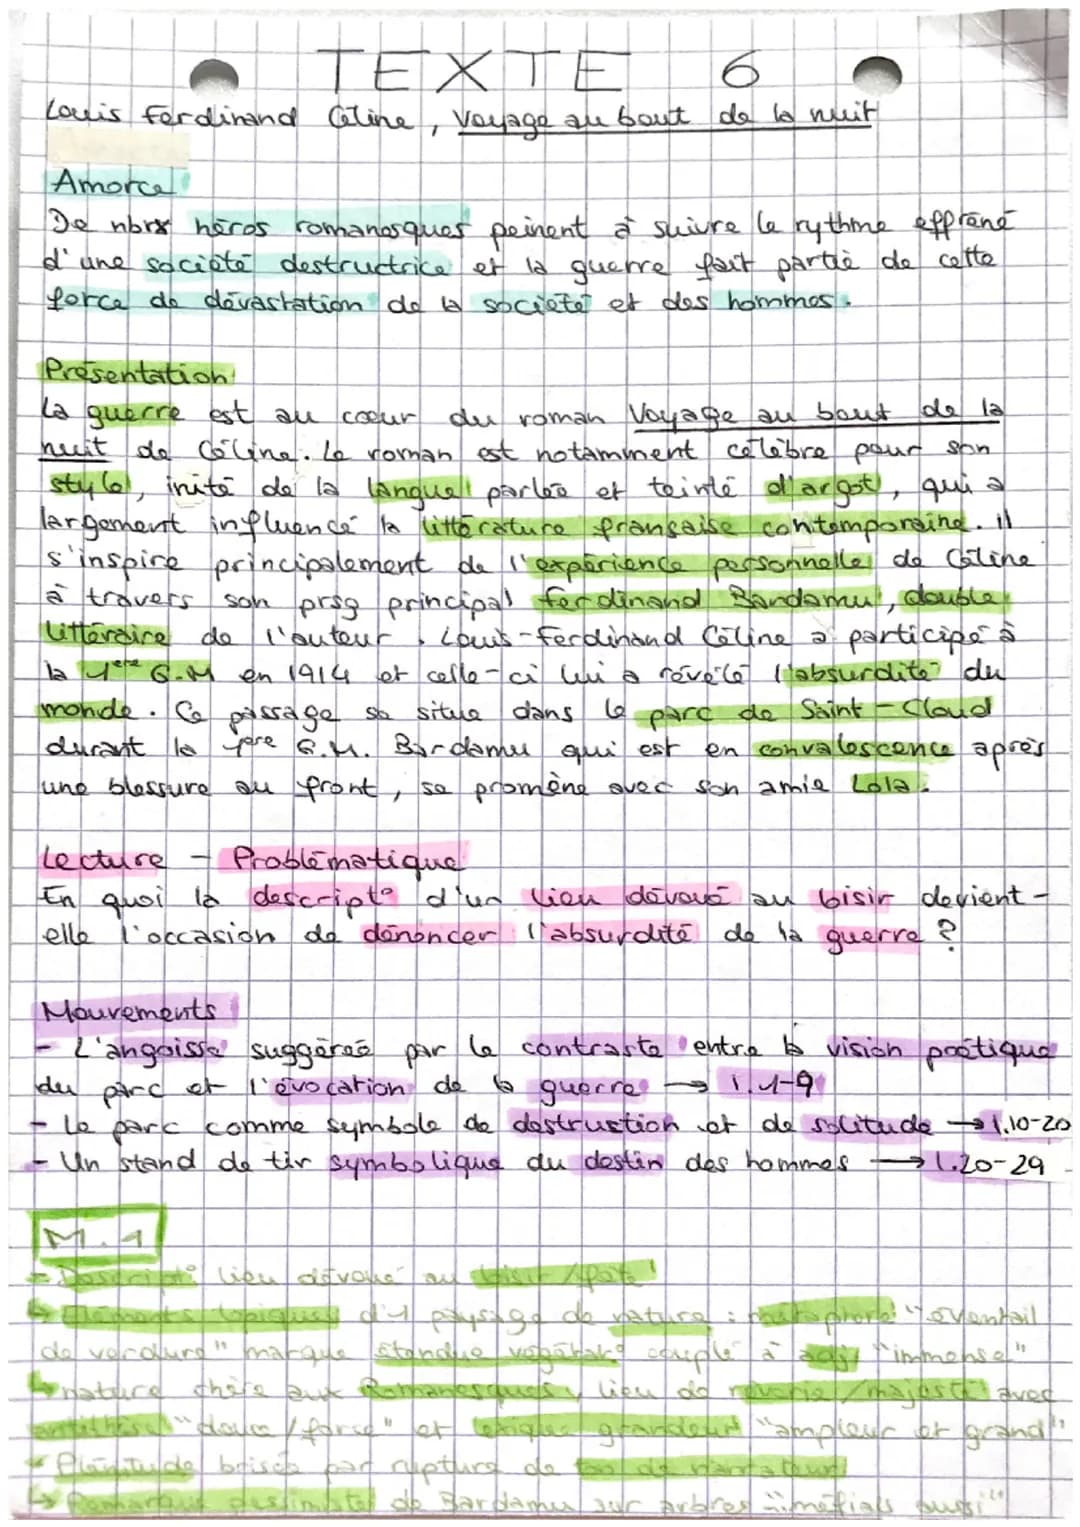 TEXTE 6
Louis Ferdinand Céline, Voyage au bout de la nuit
Amorce
De nbrx héros romanesques peinent à suivre le rythme effréné
d'une société destructrice et la guerre fait partie de cette
force de dévastation de la société et des hommes.
Présentation
La guerre est au coeur du roman Voyage au bout de la
nuit de Céline. Le roman est notamment célèbre pour son
style, inité de la langue parlée et teinté d'argot, qui a
largement influencé la littérature française contemporaine. il
s'inspire principalement de l'expérience personnelle de Céline
à travers son prsg principal Ferdinand Bardamu, double
littéraire de l'auteur. Louis-Ferdinand Céline a participé à
la 1ère G.M en 1914 et celle-ci lui a révélé l'absurdité du
monde. Ce passage se situe dans le parc de Saint-Cloud
durant la 1ère G.M. Bardamu qui est en convalescence après
une blessure au front, se promène avec son amie Lola.
Lecture - Problématique
En quoi la descript° d'un lieu dévoué au loisir devient-
elle l'occasion de dénoncer l'absurdité de la guerre ?
Mouvements
- L'angoisse suggérée par le contraste entre la vision poétique
du parc et l'évocation de la guerre → l.1-9
- Le parc comme symbole de destruction et de solitude → l.10-20
- Un stand de tir symbolique du destin des hommes → l.20-29
M.1
- Descript° lieu dévoué au loisir/fête
↳ Éléments topiques d'1 paysage de nature : métaphore "éventail
de verdure" marque étendue végétale couplé à adj "immense"
↳ nature chère aux Romanesques, lieu de rêverie/majesté avec
antithèse "douce/force" et lexique grandeur "ampleur et grand"
Plénitude brisée par rupture de ton de narrateur
↳ Remarque pessimiste de Bardamu sur arbres "méfiais aussi"